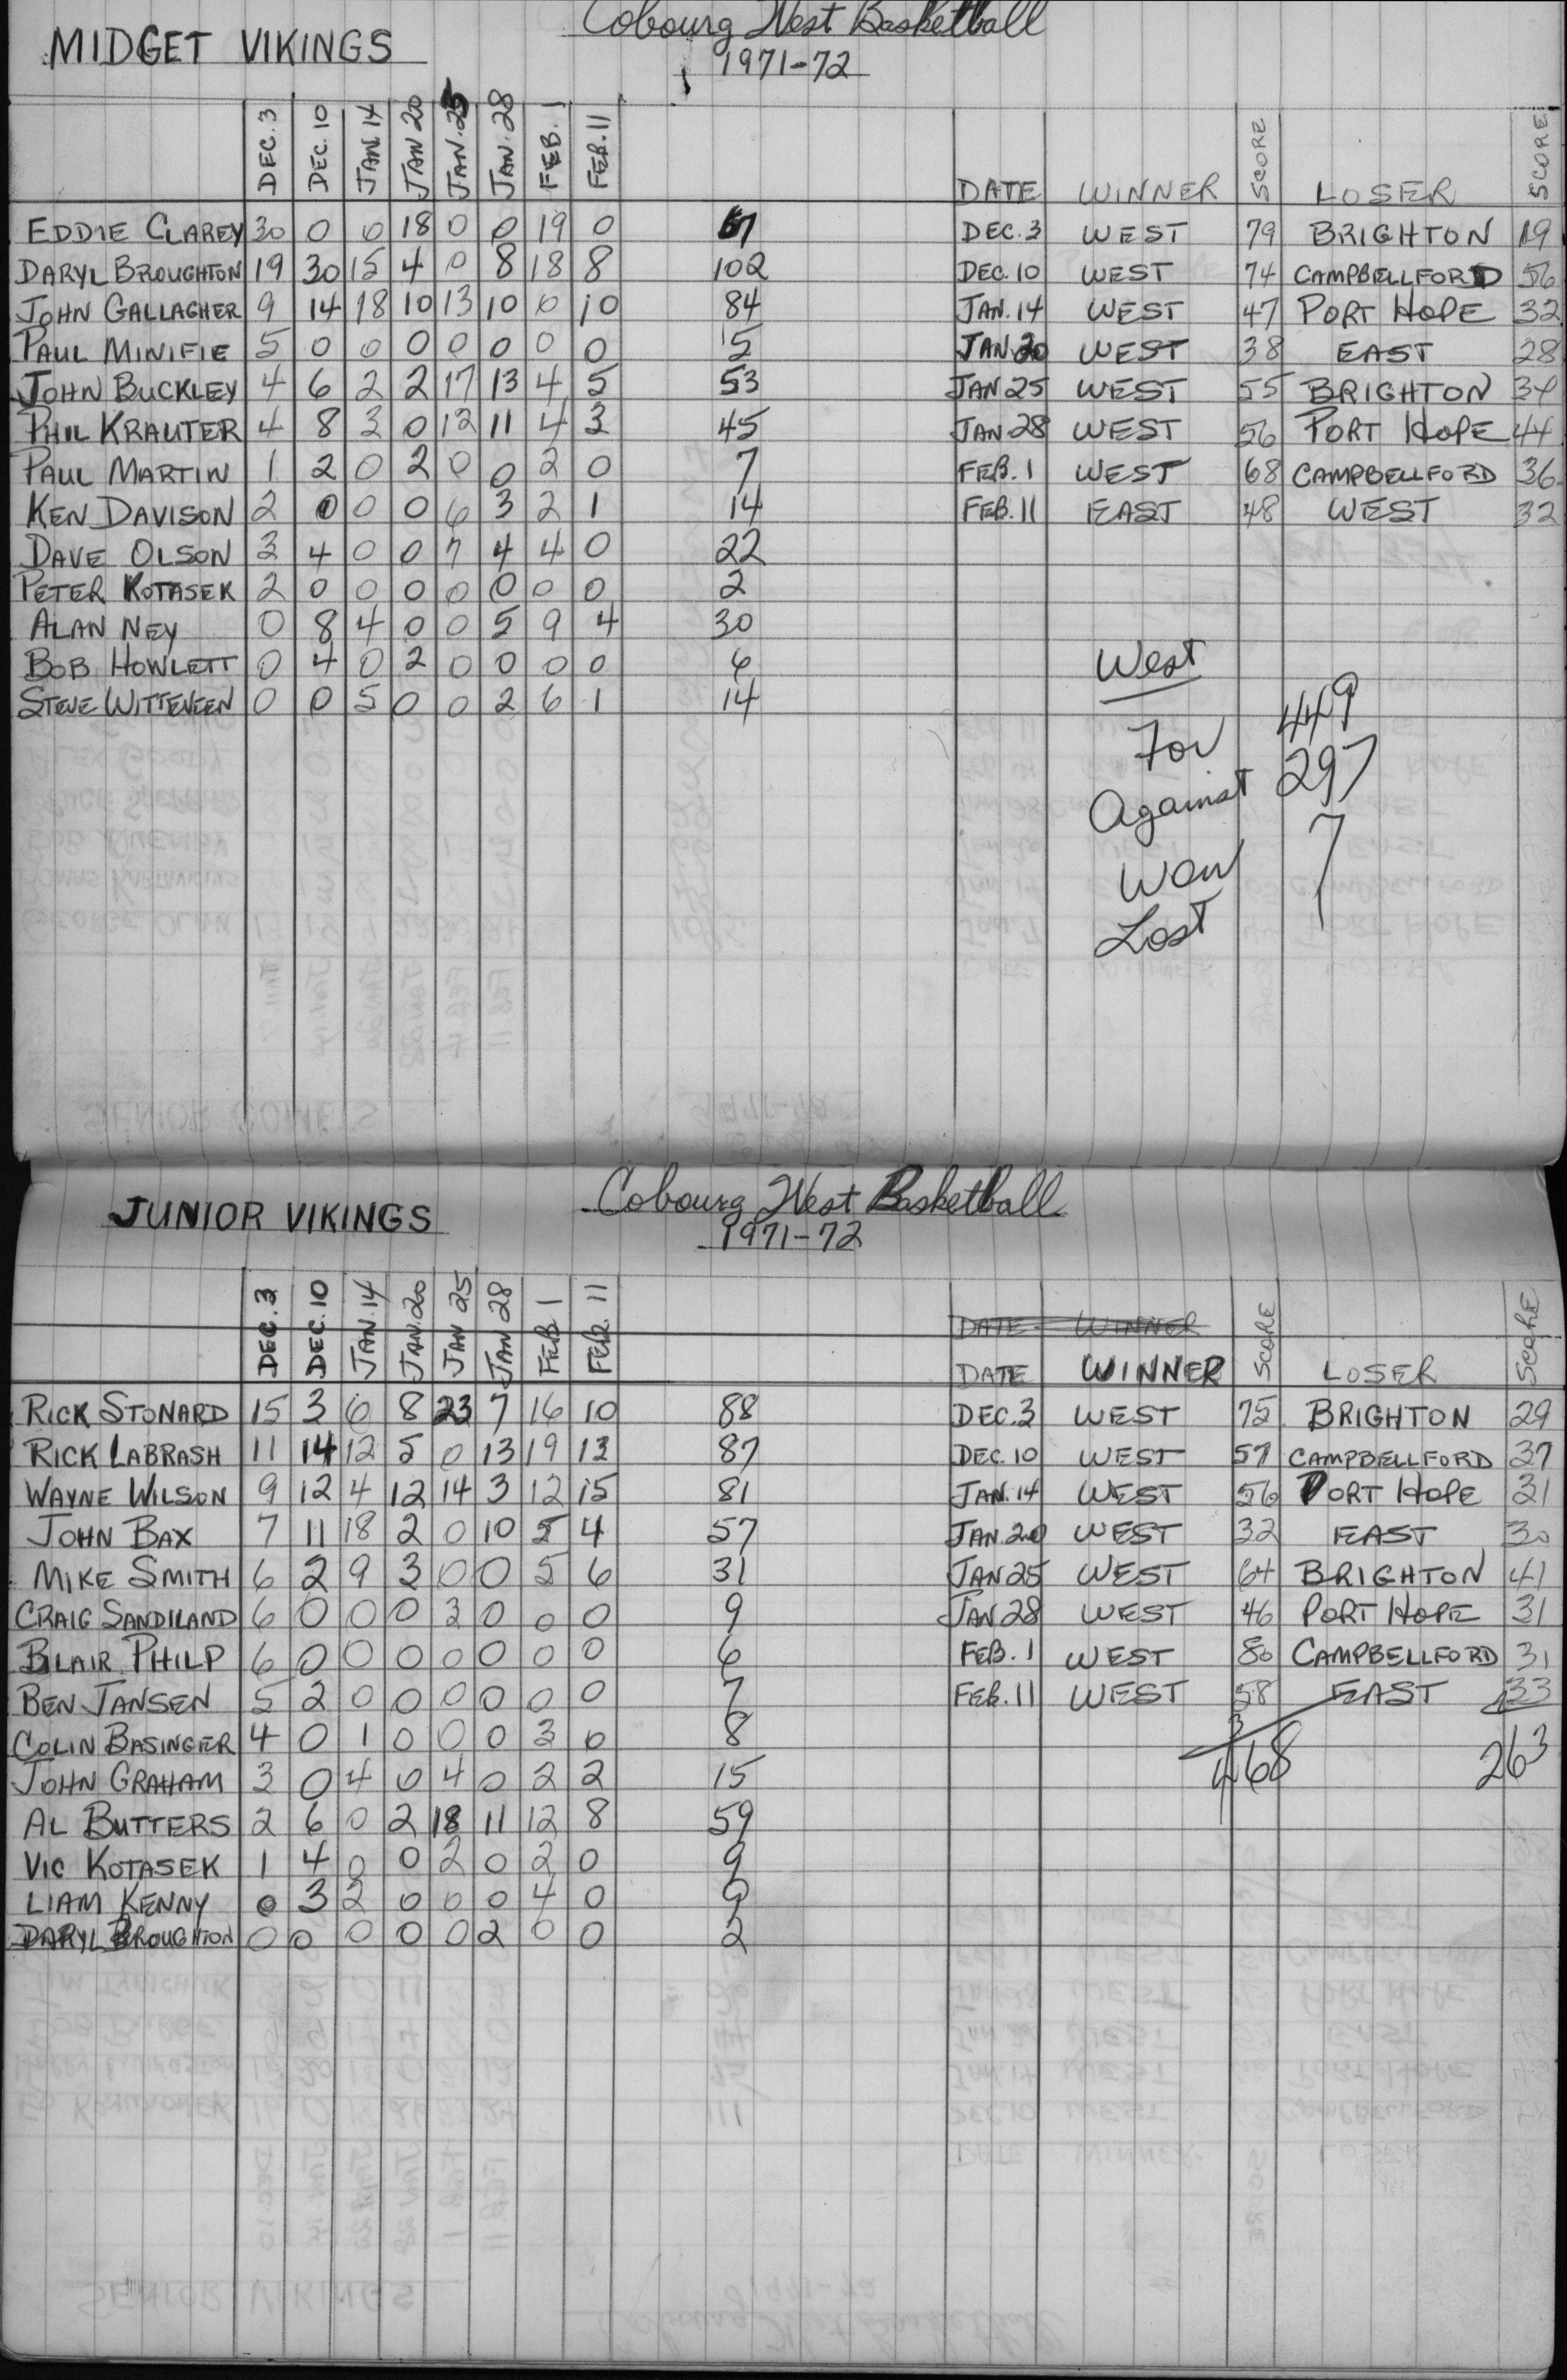 MIDGET VIKINGS Cobourg West Basketball
1971-72
DEC. 3 DEC. 10 JAN. 14 JAN 20 JAN. 25 JAN. 28 FEB. 1 FEB. 11 DATE WINNER SCORE LOSER SCORE
EDDIE CLAREY 30 0 0 18 0 0 19 0 67 DEC. 3 WEST 79 BRIGHTON 19
DARYL BROUGHTON 19 30 15 4 0 8 18 8 102 DEC. 10 WEST 74 CAMPBELLFORD 56
JOHN GALLAGHER 9 14 18 10 13 10 0 10 84 JAN. 14 WEST 47 PORT HOPE 32
PAUL MINIFIE 5 0 0 0 0 0 0 0 5 JAN. 20 WEST 38 EAST 28
JOHN BUCKLEY 4 6 2 2 17 13 4 5 53 JAN 25 WEST 55 BRIGHTON 34
PHIL KRAUTER 4 8 3 0 12 11 4 3 45 JAN 28 WEST 56 PORT HOPE 44
PAUL MARTIN 1 2 0 2 0 0 2 0 7 FEB. 1 WEST 68 CAMPBELLFORD 36
KEN DAVISON 2 0 0 0 6 3 2 1 14 FEB. 11 EAST 48 WEST 32
DAVE OLSON 3 4 0 0 7 4 4 0 22
PETER KOTASEK 2 0 0 0 0 0 0 0 2
ALAN NEY 0 8 4 0 0 5 9 4 30
BOB HOWLETT 0 4 0 2 0 0 0 0 6
STEVE WITTEVEEN 0 0 5 0 0 2 6 1 14
West
For 449
Against 297
Won 7
Lost 1
JUNIOR VIKINGS Cobourg West Basketball
1971-72
DATE WINNER
DEC. 3 DEC. 10 JAN. 14 JAN. 20 JAN 25 JAN 28 FEB 1 FEB. 11 DATE WINNER SCORE LOSER SCORE
RICK STONARD 15 3 6 8 23 7 16 10 88 DEC. 3 WEST 75 BRIGHTON 29
RICK LABRASH 11 14 12 5 0 13 19 13 87 DEC. 10 WEST 57 CAMPBELLFORD 37
WAYNE WILSON 9 12 4 12 14 3 12 15 81 JAN. 14 WEST 56 PORT HOPE 31
JOHN BAX 7 11 18 2 0 10 5 4 57 JAN. 20 WEST 32 EAST 30
MIKE SMITH 6 2 9 3 0 0 5 6 31 JAN 25 WEST 64 BRIGHTON 41
CRAIG SANDILAND 6 0 0 0 3 0 0 0 9 JAN 28 WEST 46 PORT HOPE 31
BLAIR PHILP 6 0 0 0 0 0 0 0 6 FEB. 1 WEST 80 CAMPBELLFORD 31
BEN JANSEN 5 2 0 0 0 0 0 0 7 FEB. 11 WEST 58 EAST 33
COLIN BASINGER 4 0 1 0 0 0 3 0 8 468 263
JOHN GRAHAM 3 0 4 0 4 0 2 2 15
AL BUTTERS 2 6 0 2 18 11 12 8 59
VIC KOTASEK 1 4 0 0 2 0 2 0 9
LIAM KENNY 0 3 2 0 0 0 4 0 9
DARYL BROUGHTON 0 0 0 0 0 2 0 0 2